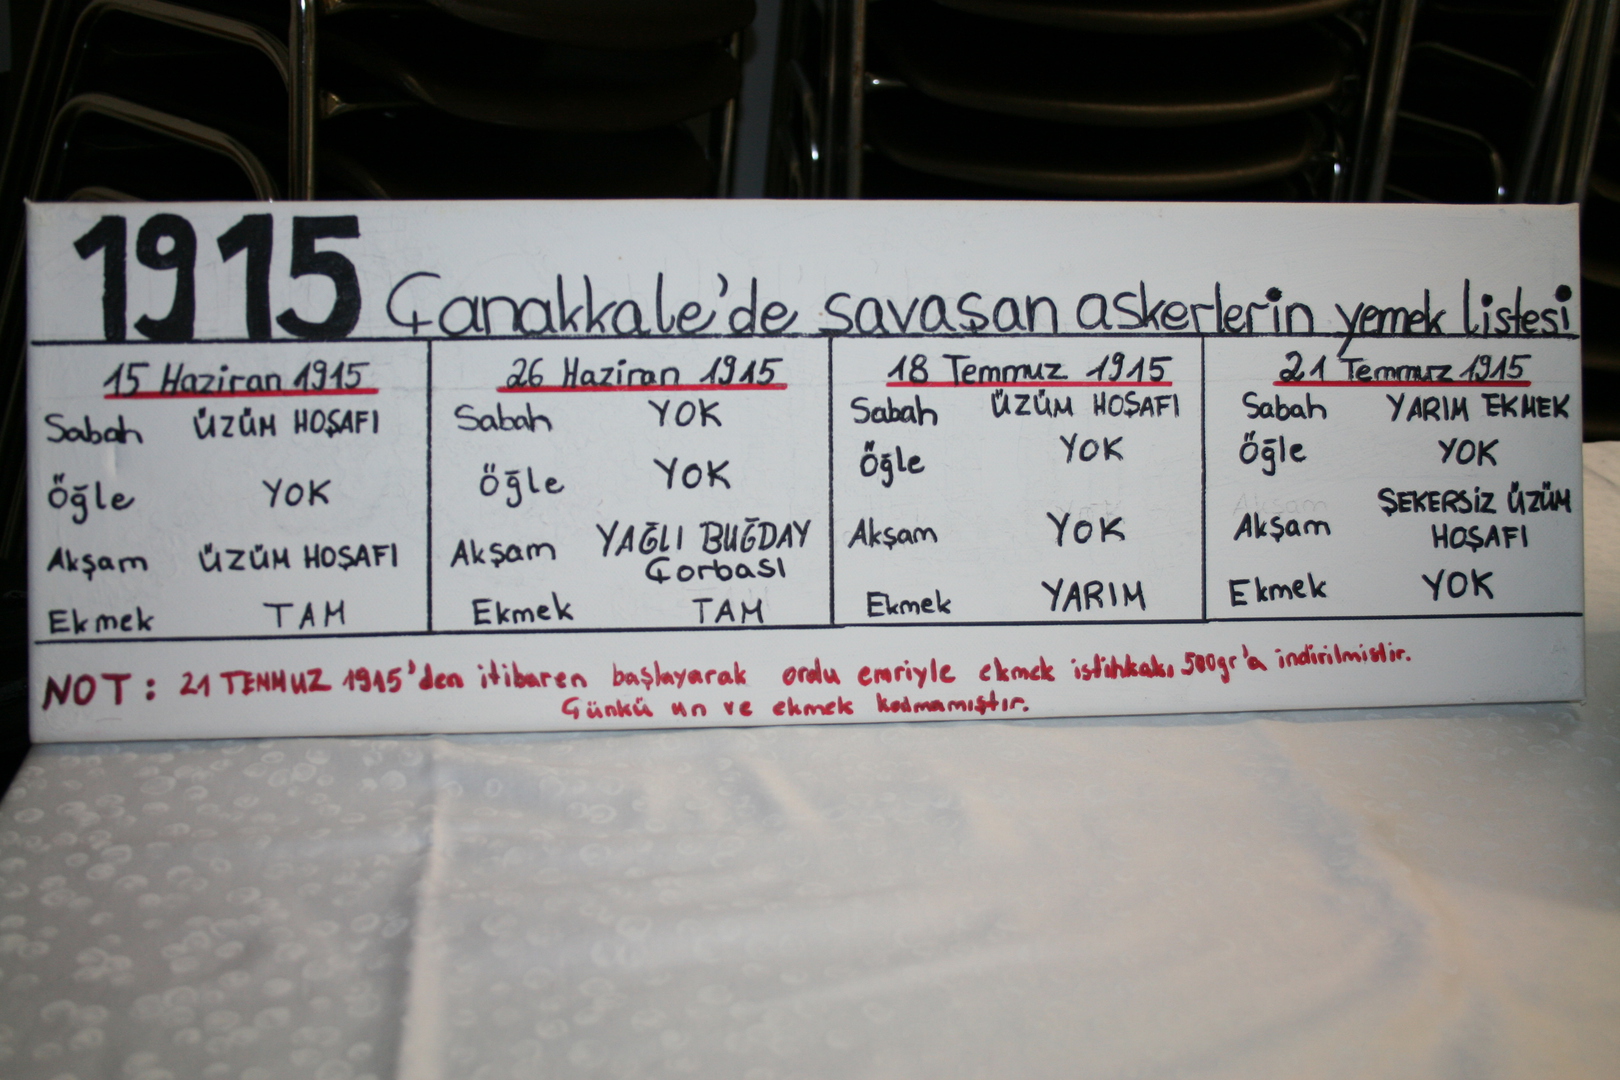 1915 Çanakkale'de savaşan askerlerin yemek listesi
15 Haziran 1915
Sabah ÜZÜM HOŞAFI
Öğle YOK
Akşam ÜZÜM HOŞAFI
Ekmek TAM
26 Haziran 1915
Sabah YOK
Öğle YOK
Akşam YAĞLI BUĞDAY
Çorbası
Ekmek TAM
18 Temmuz 1915
Sabah ÜZÜM HOŞAFI
Öğle YOK
Akşam YOK
Ekmek YARIM
21 Temmuz 1915
Sabah YARIM EKMEK
Öğle YOK
Akşam ŞEKERSİZ ÜZÜM
HOŞAFI
Ekmek YOK
NOT: 21 TEMMUZ 1915'den itibaren başlayarak ordu emriyle ekmek istihkakı 500gr'a indirilmiştir.
Çünkü un ve ekmek kalmamıştır.